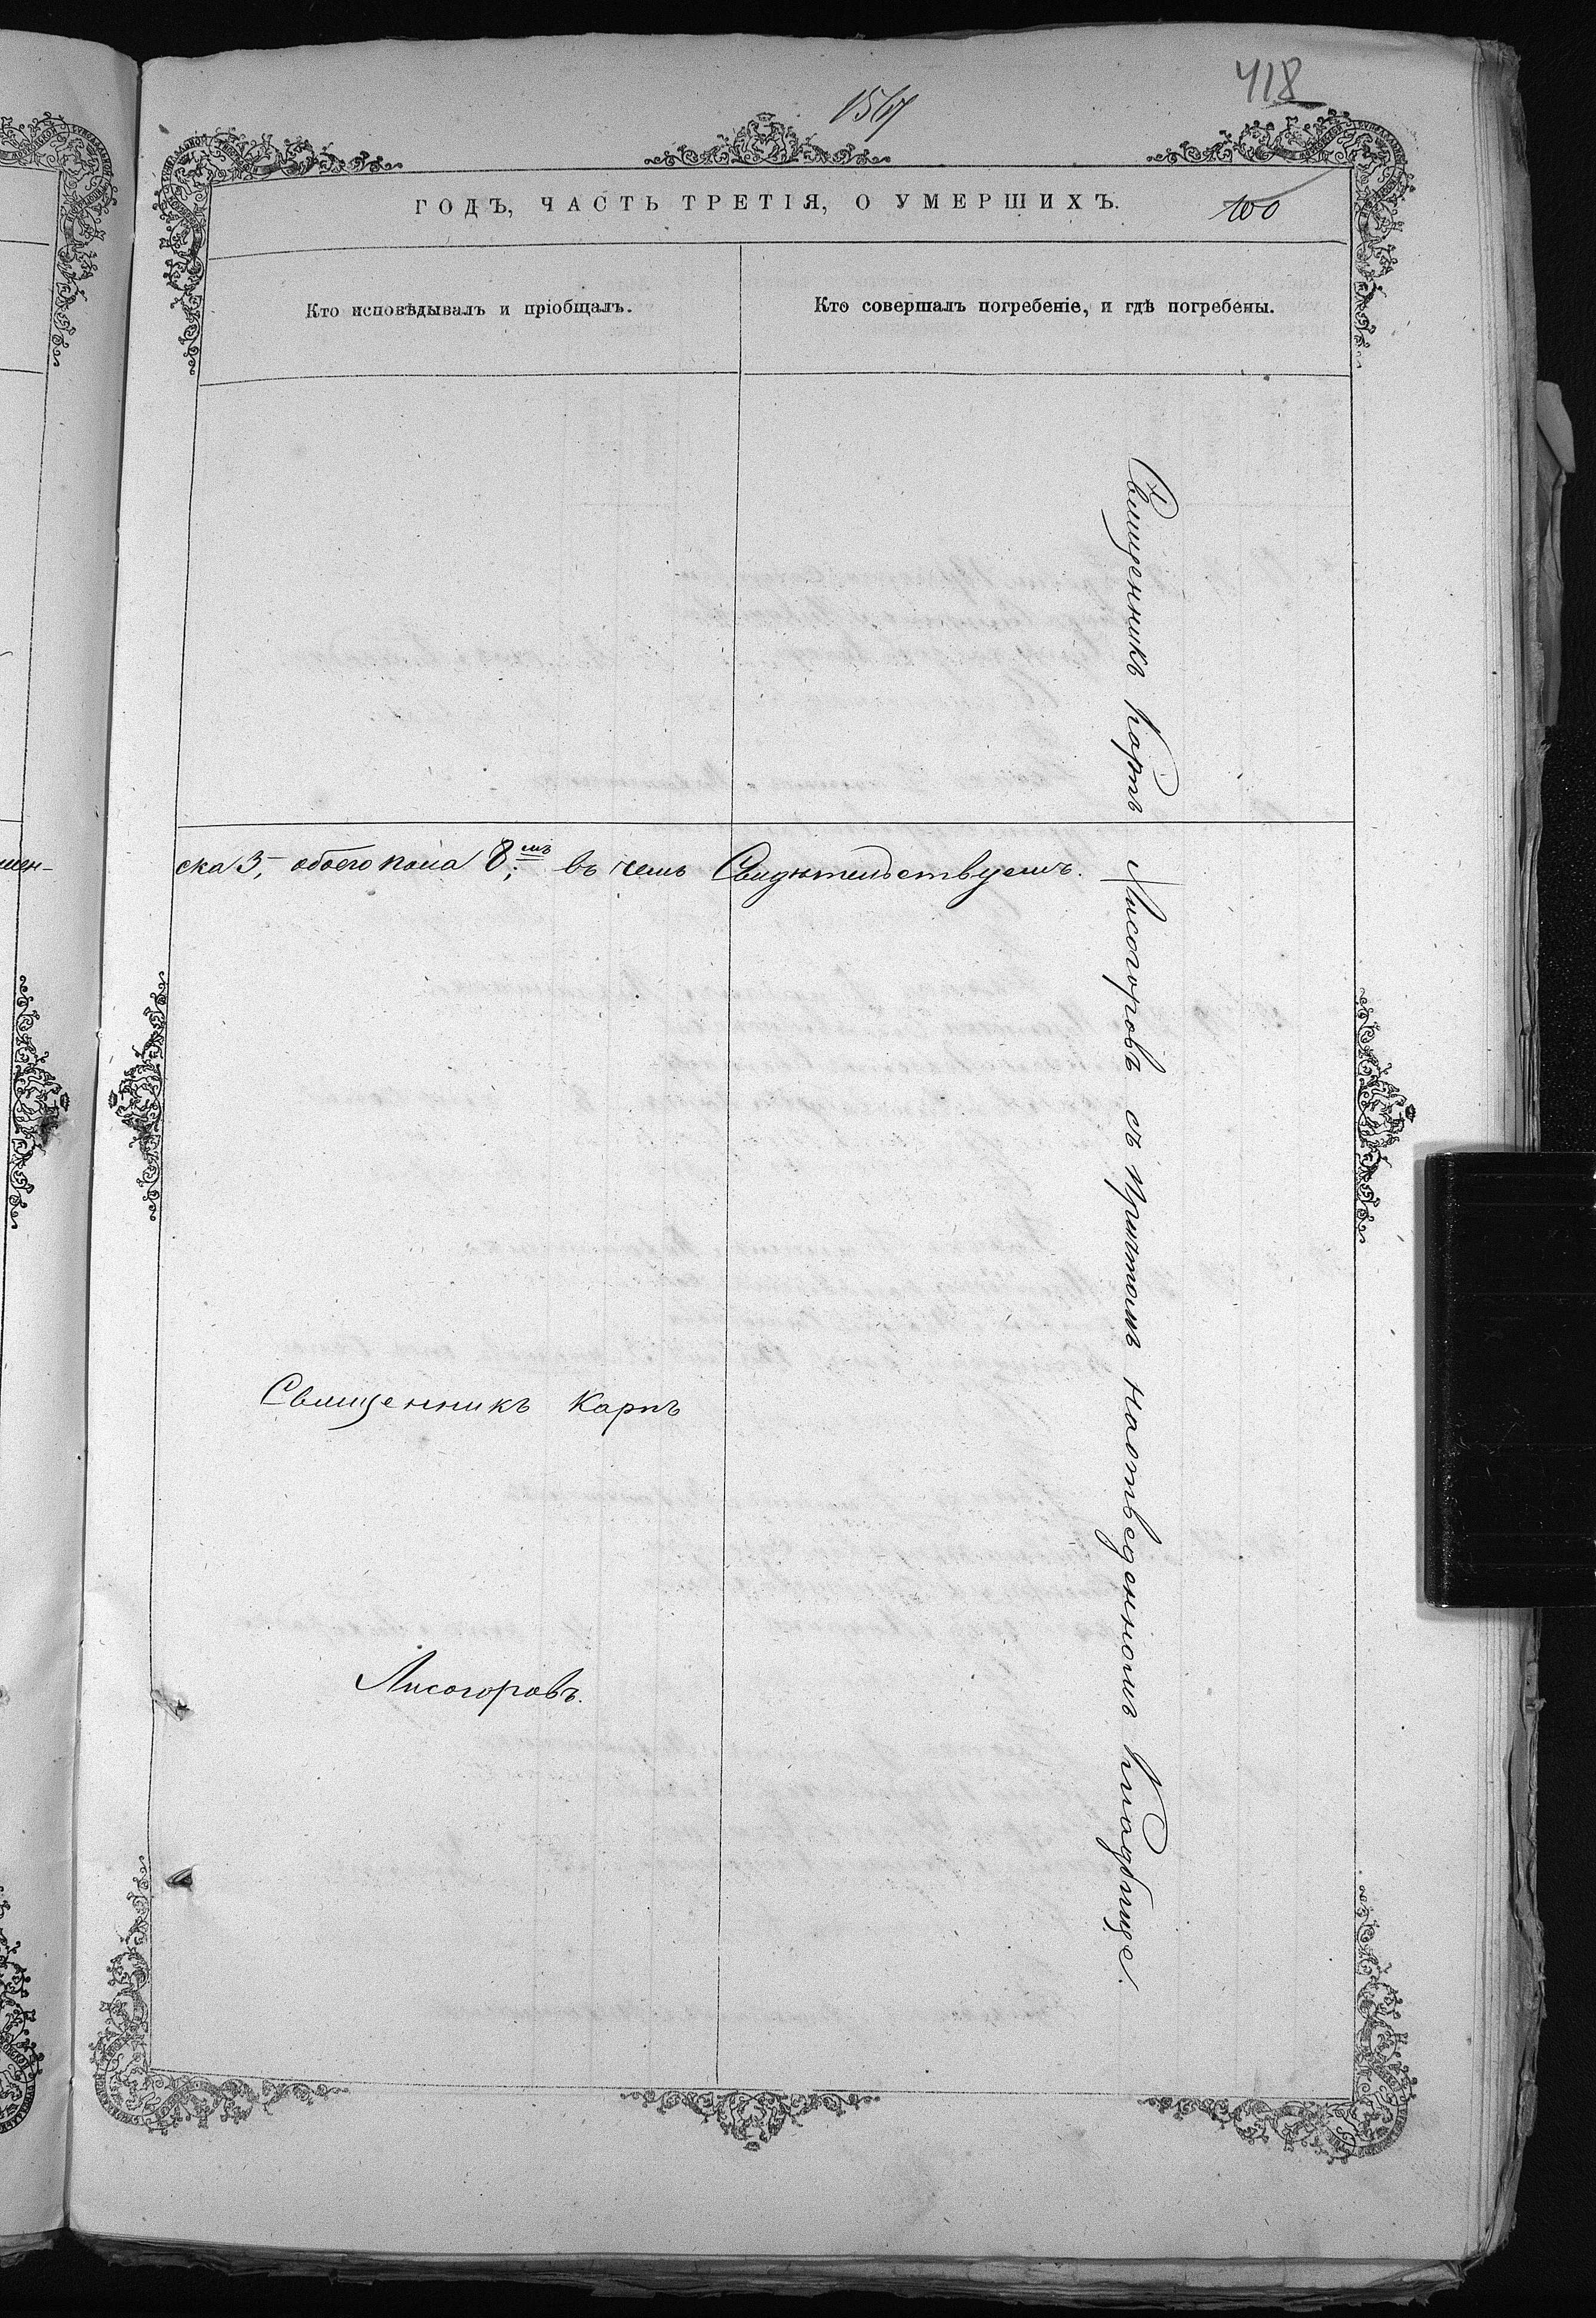 418
ГОДЪ, ЧАСТЬ ТРЕТІЯ, О УМЕРШИХЪ.
100
Кто исповѣдывалъ и пріобщалъ.
Кто совершалъ погребеніе, и гдѣ погребены.
ска 3, обоего пола 8; въ чемъ Свидѣтельствуемъ.
Священникъ Карпъ
Лисогоровъ.
Священникъ Карпъ Лисогоровъ съ причтомъ на отведенномъ Кладбище.